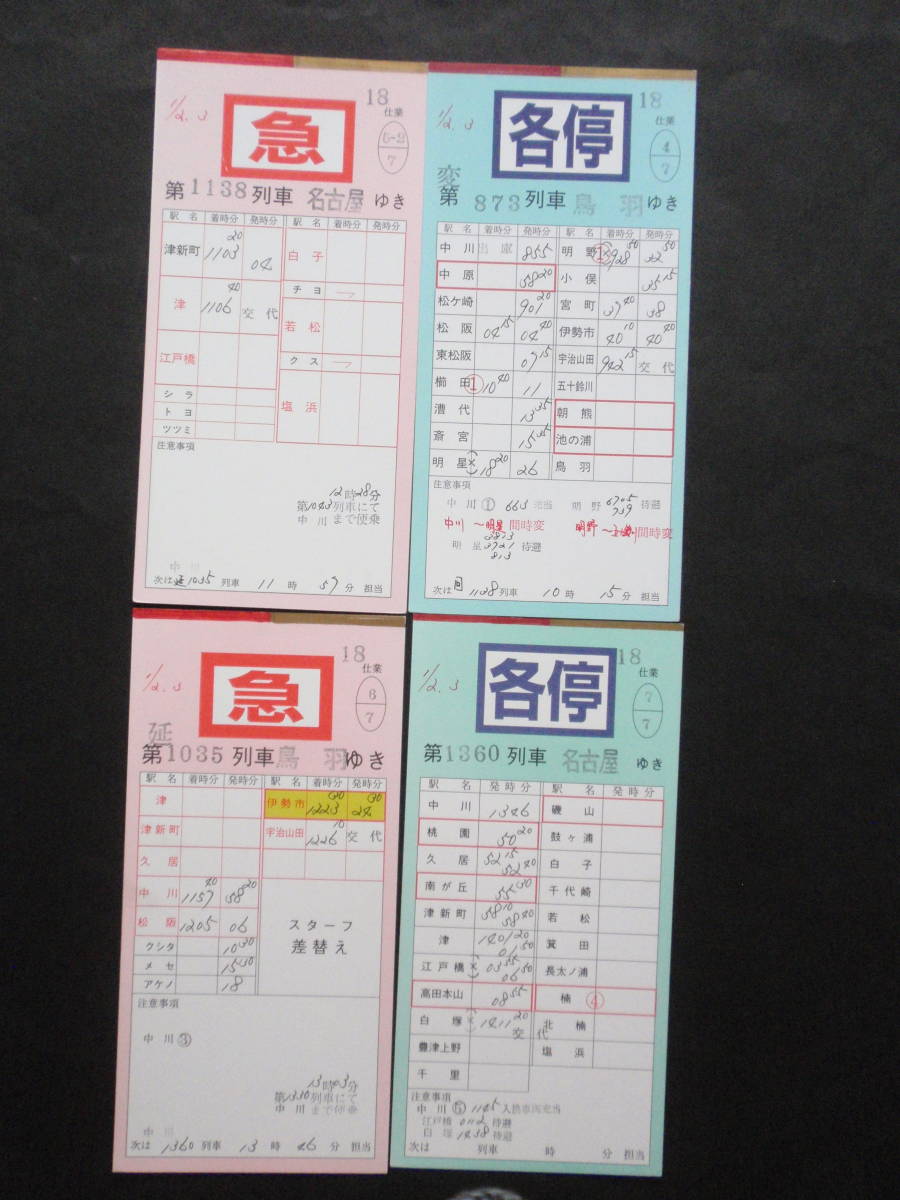 1/2.3
18
仕業
5-2
7
急
第1138列車 名古屋 ゆき
駅名 着時分 発時分 駅名 着時分 発時分
津新町 1103 20 04 白子
チヨ
津 1106 40 交代 若松
江戸橋 クス
シラ 塩浜
トヨ
ツツミ
注意事項
12時28分
第1043列車にて
中川まで便乗
中川
次は 延1035 列車 11 時 57 分 担当
1/2.3
18
仕業
4
7
各停
変
第 873 列車 鳥羽 ゆき
駅名 着時分 発時分 駅名 着時分 発時分
中川 出庫 855 明野 ① 928 50 32 50
中原 58 20 小俣 35 15
松ケ崎 901 20 宮町 37 40 38
松阪 04 15 04 40 伊勢市 40 10 40 40
東松阪 07 15 宇治山田 942 15 交代
櫛田 ① 10 40 11 五十鈴川
漕代 13 35 朝熊
斎宮 15 45 池の浦
明星 × 18 20 26 鳥羽
注意事項
中川 ① 665 充当 明野 6705 739 待避
中川 〜明星 間時変 明野 〜 間時変
明星 3873 3721 813 待避
次は 回 1138 列車 10 時 15 分 担当
1/2.3
18
仕業
6
7
急
延
第1035 列車 鳥羽 ゆき
駅名 着時分 発時分 駅名 着時分 発時分
津 伊勢市 1223 30 24 30
津新町 宇治山田 1226 10 交代
久居
中川 1157 40 58 20
松阪 1205 06
スターフ
差替え
クシタ 10 30
メセ 15 30
アケノ 18
注意事項
中川 ③
13時03分
第1310列車にて
中川まで便乗
中川
次は 1360 列車 13 時 46 分 担当
1/2.3
18
仕業
7
7
各停
第1360 列車 名古屋 ゆき
駅名 発時分 駅名 発時分
中川 1346 磯山
桃園 50 20 鼓ヶ浦
久居 52 15 52 40 白子
南が丘 55 30 千代崎
津新町 58 10 58 40 若松
津 1401 20 01 50 箕田
江戸橋 × 03 55 06 50 長太ノ浦
高田本山 08 55 楠 ④
白塚 × 1411 20 交代 北楠
豊津上野 塩浜
千里
注意事項
中川 ⑤ 1145 入換車両充当
江戸橋 0112 待避
白塚 1438 待避
次は 列車 時 分 担当